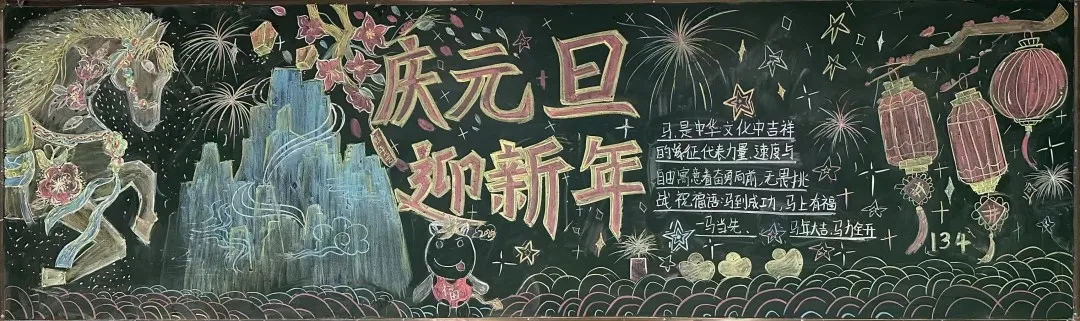 庆元旦
迎新年
马是中华文化中吉祥
的象征代表力量、速度与
自由寓意着奋勇向前,无畏挑
战祝福语:马到成功,马上有福
一马当先、马年大吉,马力全开
福
134